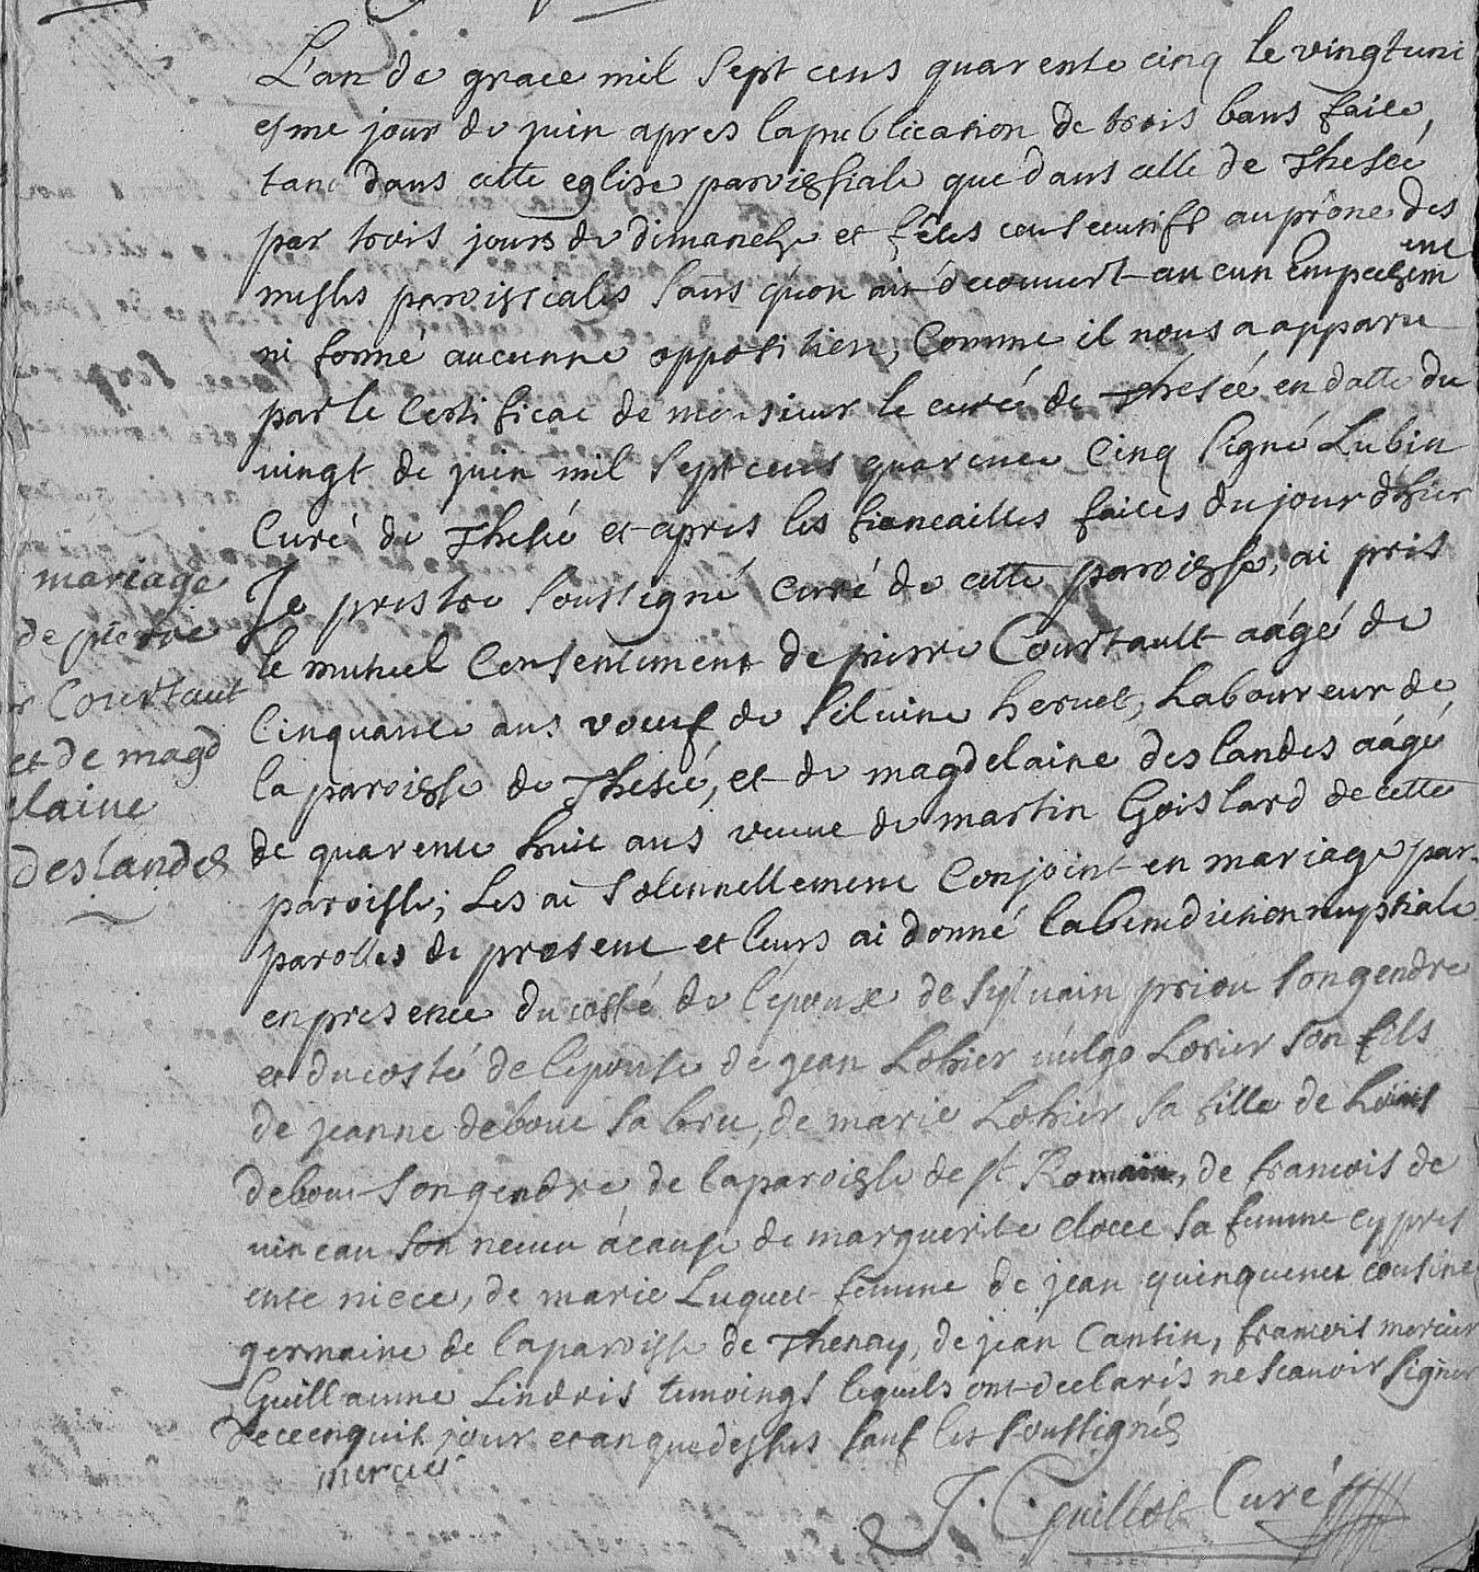 L'an de grace mil sept cens quarente cinq le vingtuni
esme jour de juin apres la publication de trois bans faite,
tant dans cette eglise paroissiale que dans celle de Thesée
par trois jours de dimanche et fêtes consecutifs au prône des
messes paroissiales sans qu'on ait decouvert aucun empechem
ent
ni formé aucunne opposition, comme il nous a apparu
par le certificat de monsieur le curé de Thesée en datte du
vingt de juin mil sept cens quarente cinq signé Lubin
curé de Thesée et apres les fiancailles faites du jour d'hier
mariage
de pierre
Courtaut
et de magd
elaine
deslandes
Je prestre soussigné curé de cette paroisse, ai pris
le mutuel consentement de pierre Courtault aâgé de
cinquante ans voeuf de silvine hervet, Laboureur de
la paroisse de Thesée, et de magdelaine deslandes aâgé
de quarente huit ans veuve de martin Goislard de cette
paroisse; Les ai solennellement conjoint en mariage par
parolles de present et leurs ai donné la benediction nuptiale
en presence du costé de l'epoux de sylvain priou son gendre
et du costé de l'epouse de jean Lohier vulgo Lorier son fils
de jeanne deboue sa bru, de marie Lohier sa fille de Louis
debou son gendre de la paroisse de st Romain, de francois de
vineau son neveu à cause de marguerite clocee sa femme cy pres
ente niece, de marie Luquet femme de jean quinquenet cousine
germaine de la paroisse de Thenay, de jean Cantin, francois mercier
Guillaume Lindris temoings lequels ont declarés ne scavoir signer
de ce enquit jour et an que dessus sauf les soussignés
mercier
J. C. guillot Curé